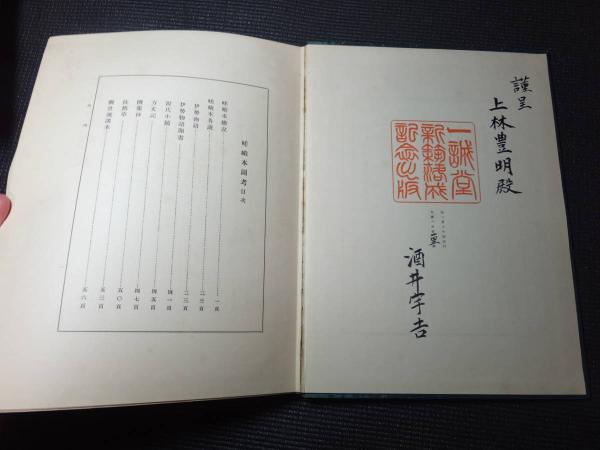 謹呈
上林豊明殿
一誠堂
新築落成
記念出版
酒井宇吉
嵯峨本圖考目次
嵯峨本總說 一頁
嵯峨本各說 二三頁
伊勢物語 二三頁
伊勢物語聞書
源氏小鏡 四一頁
方丈記 四五頁
撰集抄 四七頁
徒然草 五〇頁
觀世流謠本 五六頁
目次